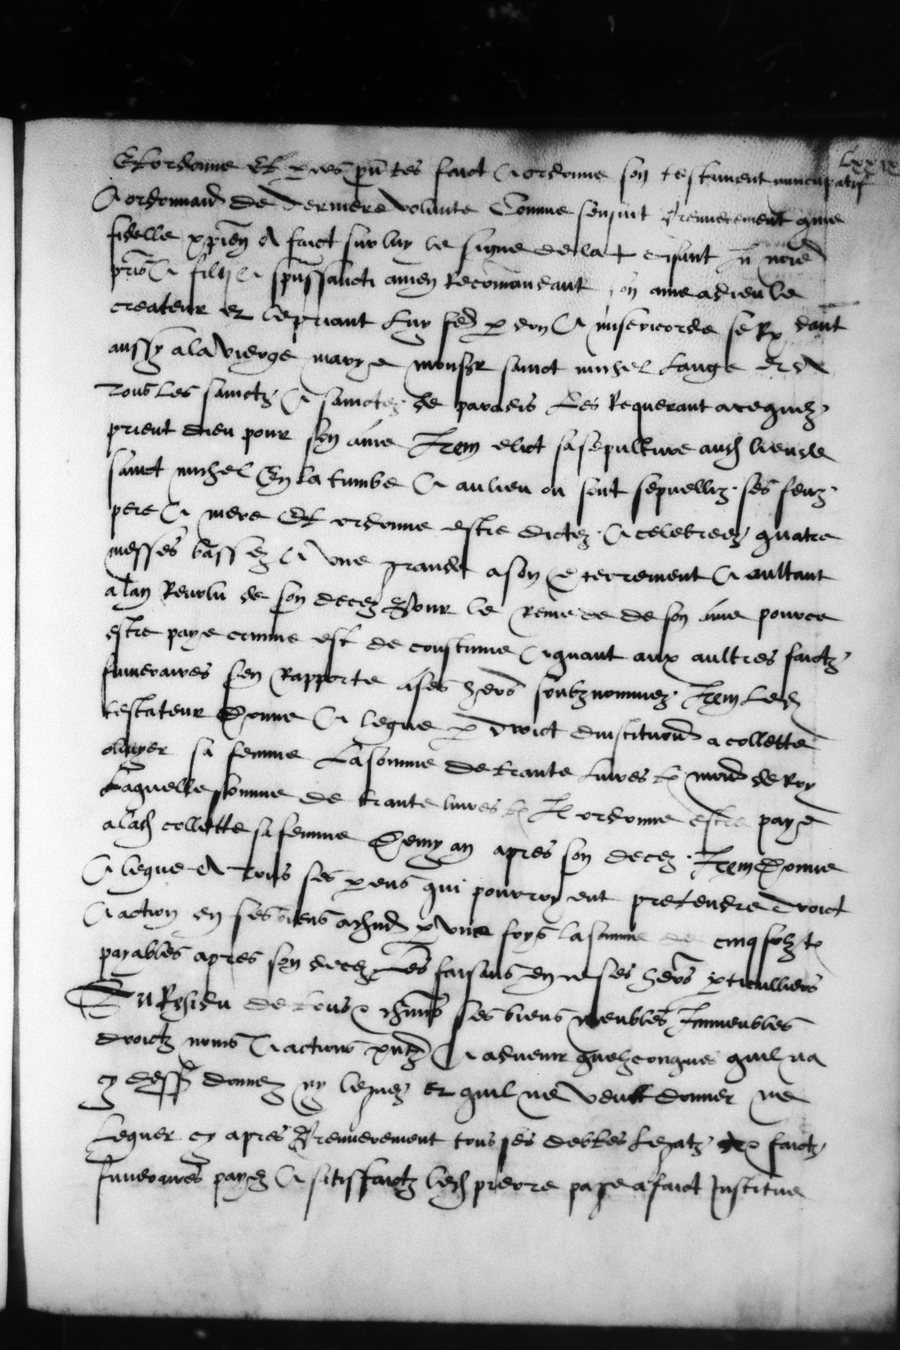 Et ordonne Et p ces pntes faict & ordonne son testament nuncupatif
& ordonnance de derniere volunte Comme sensuit Premierement comme
fidelle xpien A faict sur luy le signe de la + disant In noie
pris & filij & spussancti amen Recomandant son ame a dieu le
createur et le priant luy fe pdon & misericorde se Re dant
aussy a la vierge marye monsr sainct michel Lange Et a
Tous Les sainctz & sainctes de paradis Les Requerant a ce quilz
prient dieu pour son ame Item elict sa sepulture aud lieu de
sainct michel En la tumbe & au lieu ou sont sepuelliz ses feuz
pere & mere Et ordonne estre dictez & celebreez quatre
messes bassez & une grande a son enterrement & aultant
a lan Revolu de son decez Pour le Remede de son ame pour ce
estre paye comme est de coustume & quant aux aultres faictz
funeraires sen Rapporte a ses hers soubz nommez Item Led
testateur Donne & legue p droict dinstitution a collette
olivyer sa femme La somme de trante livres t monoe de Roy
Laquelle somme de trante livres t Il ordonne estre paye
a lad collette sa femme Demy an apres son decez Item Donne
& legue A tous ses pens qui pourroyent pretendre droict
& action en ses biens a chund p une foys la somme de cinq solz t
payables apres son decez Les faisans en ce ses hers pticulliers
Du Residu de tous & chuns ses biens meubles Immeubles
droictz noms & actions pntz & advenir quelzconques quil na
cy dessus donnez ny leguez et quil ne veult donner ne
Leguer cy apres Premierement tous ses debtes Legatz et faictz
funeraires payez & satisffaictz led pierre page a faict Institue